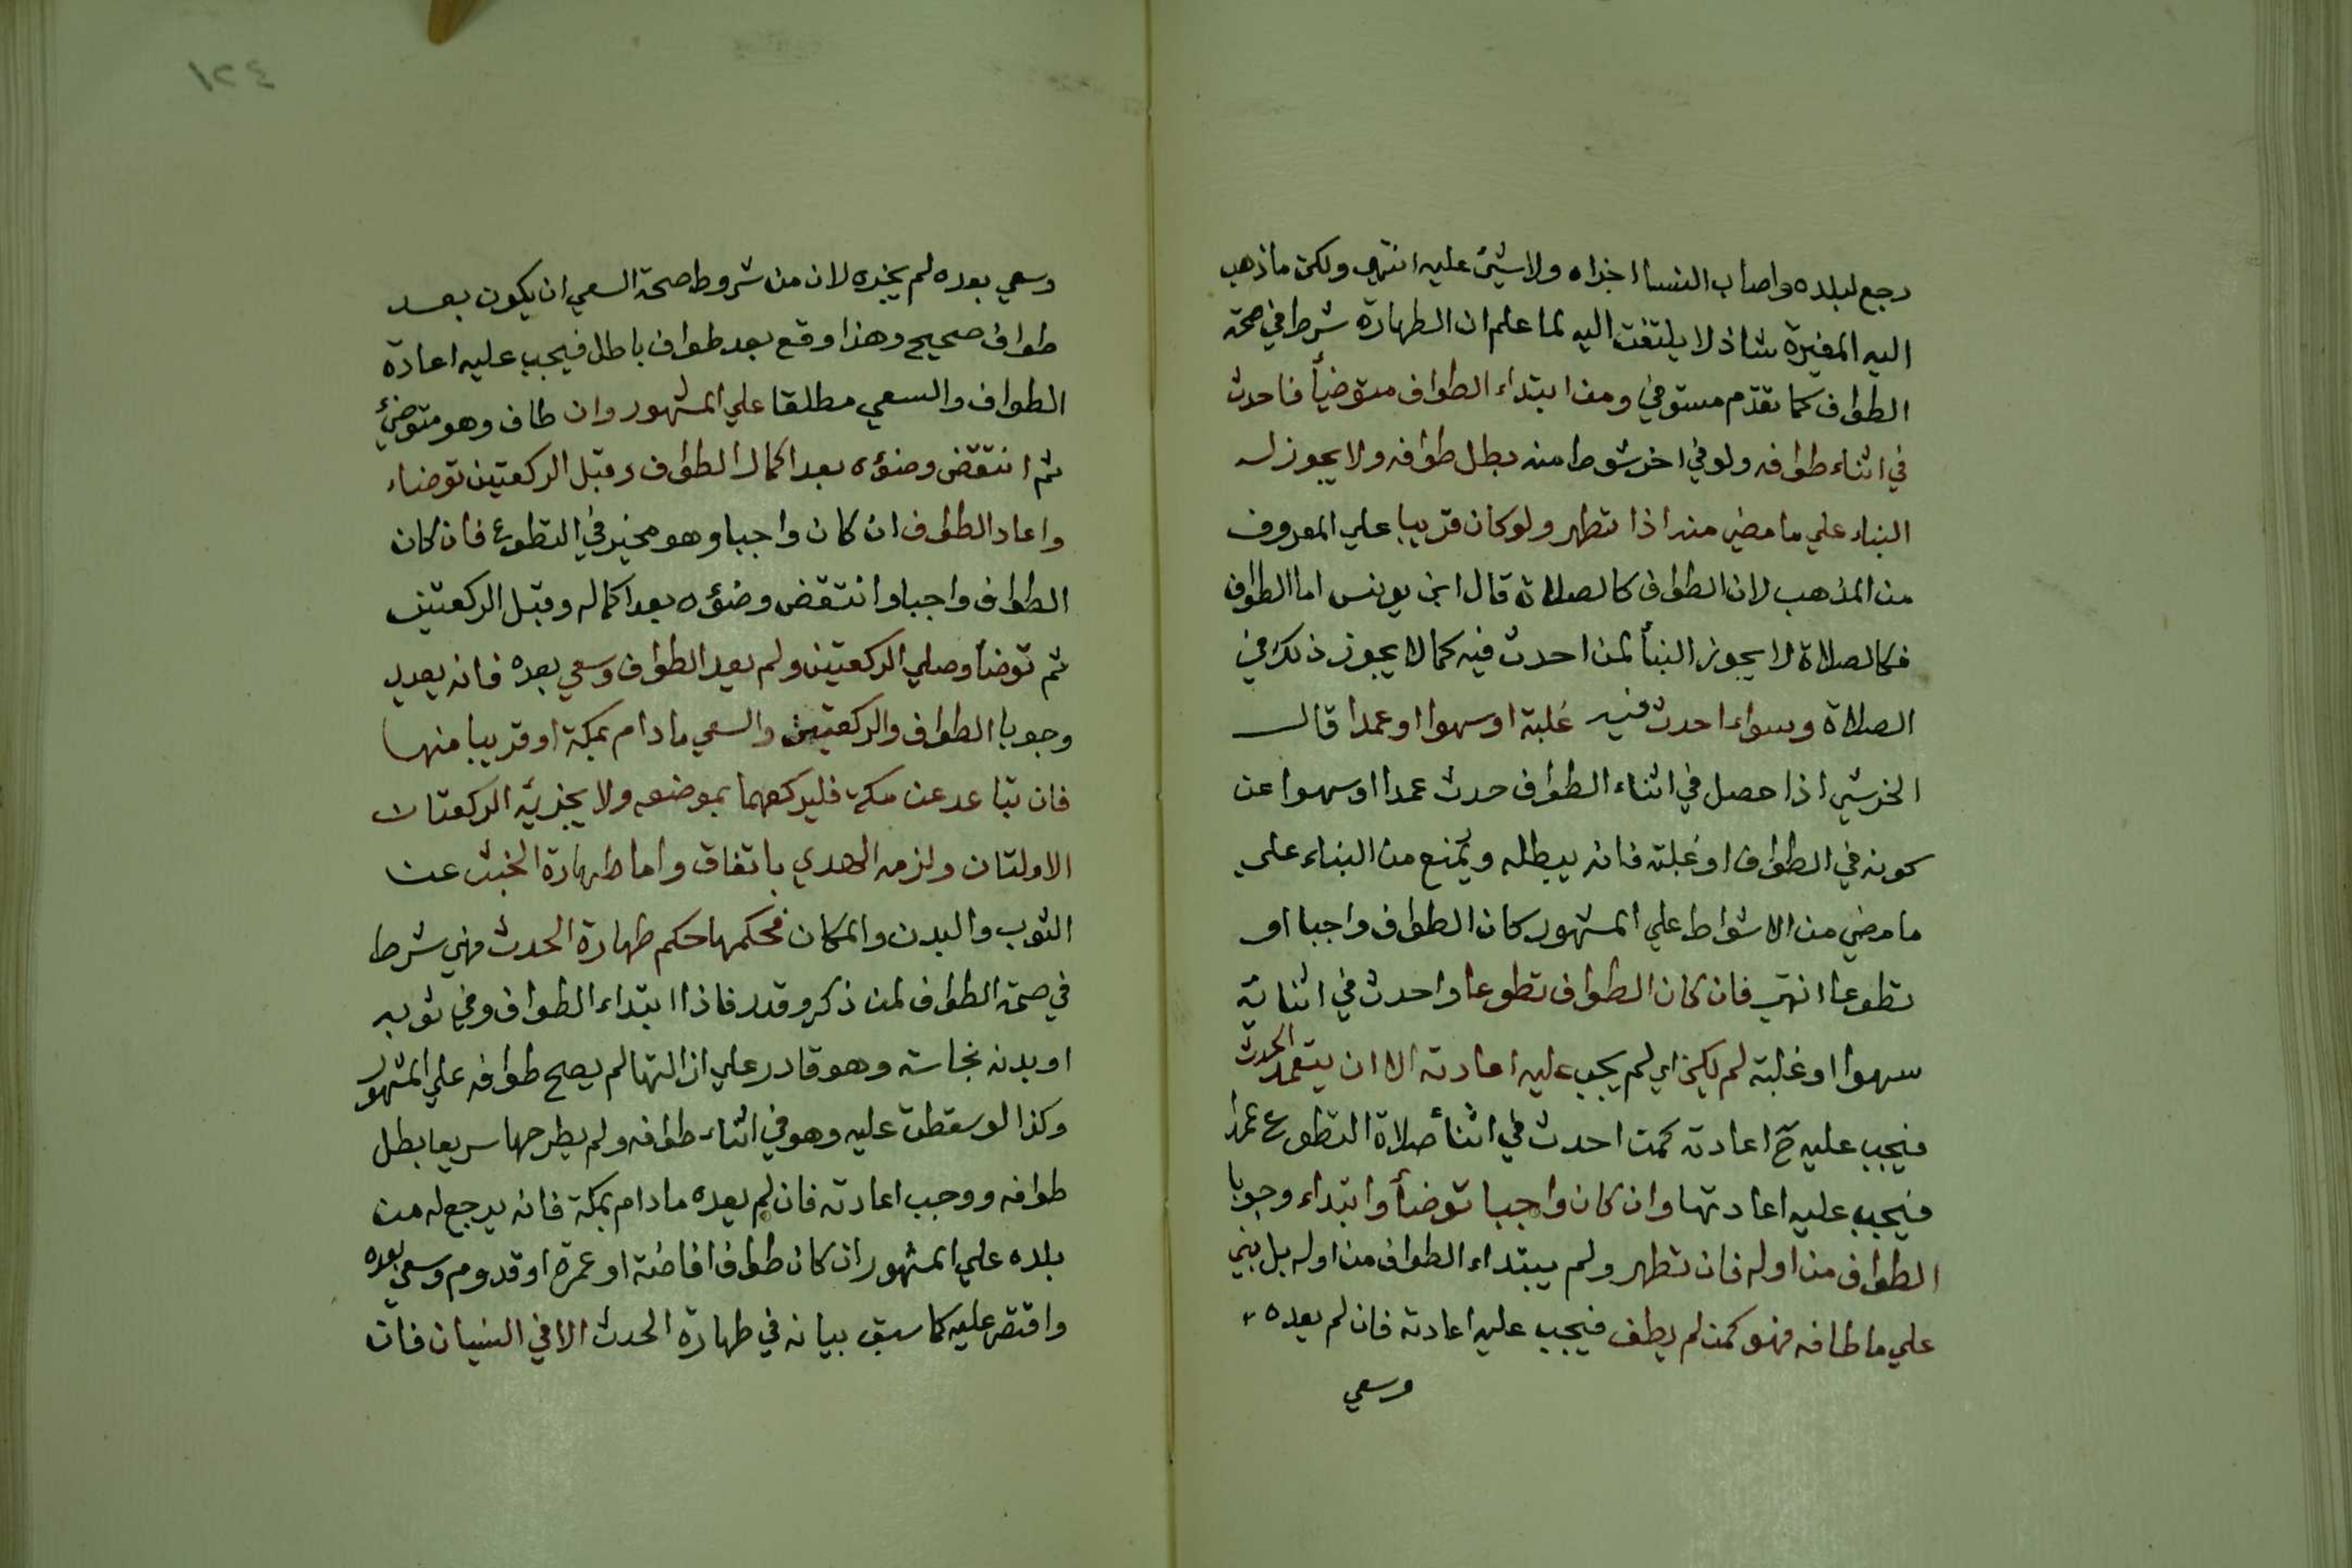 رجع لبلده واصاب النسا اجزاه ولاشئ عليه انتهي ولكن ماذهب
اليه المغيرة شاذ لا يلتفت اليه لما علم ان الطهارة شرط في صحة
الطواف كما تقدم مستوفي ومن ابتداء الطواف متوضيأ فاحدث
في اثناء طوافه ولو في اخر شوط منه بطل طوافه ولا يجوز له
البناء علي ما مضي منه اذا تطهر ولو كان قريبا علي المعروف
من المذهب لان الطواف كالصلاة قال ابن يونس اما الطواف
فكالصلاة لا يجوز البنأ لمن احدث فيه كما لا يجوز ذلك في
الصلاة وسواء احدث فيه غلبة او سهوا او عمدا قال
الخرشي اذا حصل في اثناء الطواف حدث عمدا او سهوا عن
كونه في الطواف او غلبة فانه يبطله ويمنع من البناء علي
ما مضي من الاشواط علي المشهور كان الطواف واجبا او
تطوعا انتهي فان كان الطواف تطوعا واحدث في اثنائه
سهوا او غلبة لم يكن اي لم يجب عليه اعادته الا ان يتعمد الحدث
فيجب عليه ح اعادته كمن احدث في اثنأ صلاة التطوع عمدا
فيجب عليه اعادتها وان كان واجبا توضأ وابتداء وجوبا
الطواف من اوله فان تطهر ولم يبتداء الطواف من اوله بل بني
علي ما طافه فهو كمن لم يطف فيجب عليه اعادته فان لم يعده
وسعي
١٢٤
وسعي بعده لم يجزه لان من شروط صحة السعي ان يكون بعد
طواف صحيح وهذا وقع بعد طواف باطل فيجب عليه اعادة
الطواف والسعي مطلقا علي المشهور وان طاف وهو متوضئ
ثم انتقض وضؤه بعد اكمال الطواف وقبل الركعتين توضاء
واعاد الطواف ان كان واجبا وهو مخير في التطوع فان كان
الطواف واجبا وانتقض وضؤه بعد اكماله وقبل الركعتين
ثم توضأ وصلي الركعتين ولم يعد الطواف وسعي بعده فانه يعيد
وجوبا الطواف والركعتين والسعي ما دام بمكة او قريبا منها
فان تباعد عن مكة فليركعهما بموضعه ولا يجزيه الركعتان
الاولتان ولزمه الهدي باتفاق واما طهارة الخبث عن
الثوب والبدن والمكان فحكمها حكم طهارة الحدث فهي شرط
في صحة الطواف لمن ذكر وقدر فاذا ابتداء الطواف وفي ثوبه
او بدنه نجاسة وهو قادر علي ازالتها لم يصح طوافه علي المشهور
وكذا لو سقطت عليه وهو في اثناء طوافه ولم يطرحها سريعا بطل
طوافه ووجب اعادته فان لم يعده ما دام بمكة فانه يرجع له من
بلده علي المشهور ان كان طواف افاضة او عمرة او قدوم وسعي بعده
واقتصر عليه كما سبق بيانه في طهارة الحدث الا في النسيان فان